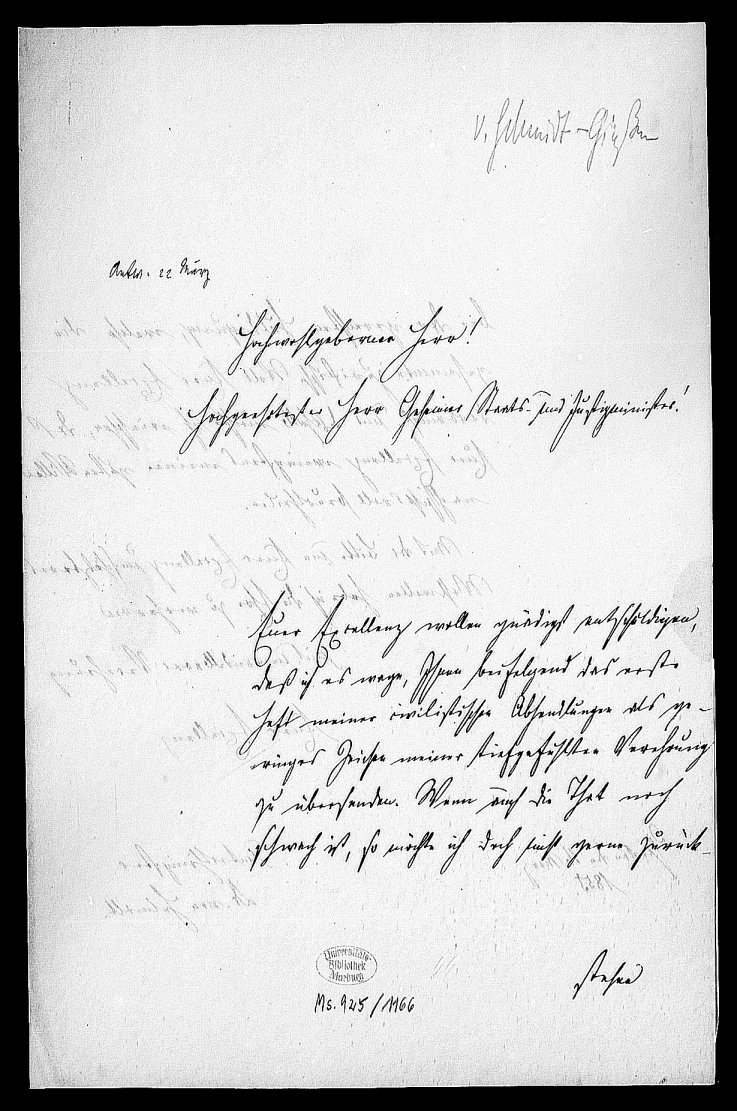 v. Schmidt-Gießen
Antw. 22 März
Hochwohlgeborner Herr!
Hochgeehrtester Herr Geheimer Staats- und Justizminister!
Euer Excellenz wollen gnädigst entschuldigen,
daß ich es wage, Ihnen beifolgend das erste
Heft meiner civilistischen Abhandlungen als ge-
ringes Zeichen meiner tiefgefühlten Verehrung
zu übersenden. Wenn auch die That noch
schwach ist, so möchte ich doch nicht gerne zurück-
stehen
Universitäts-
Bibliothek
Marburg
Ms. 925/1166